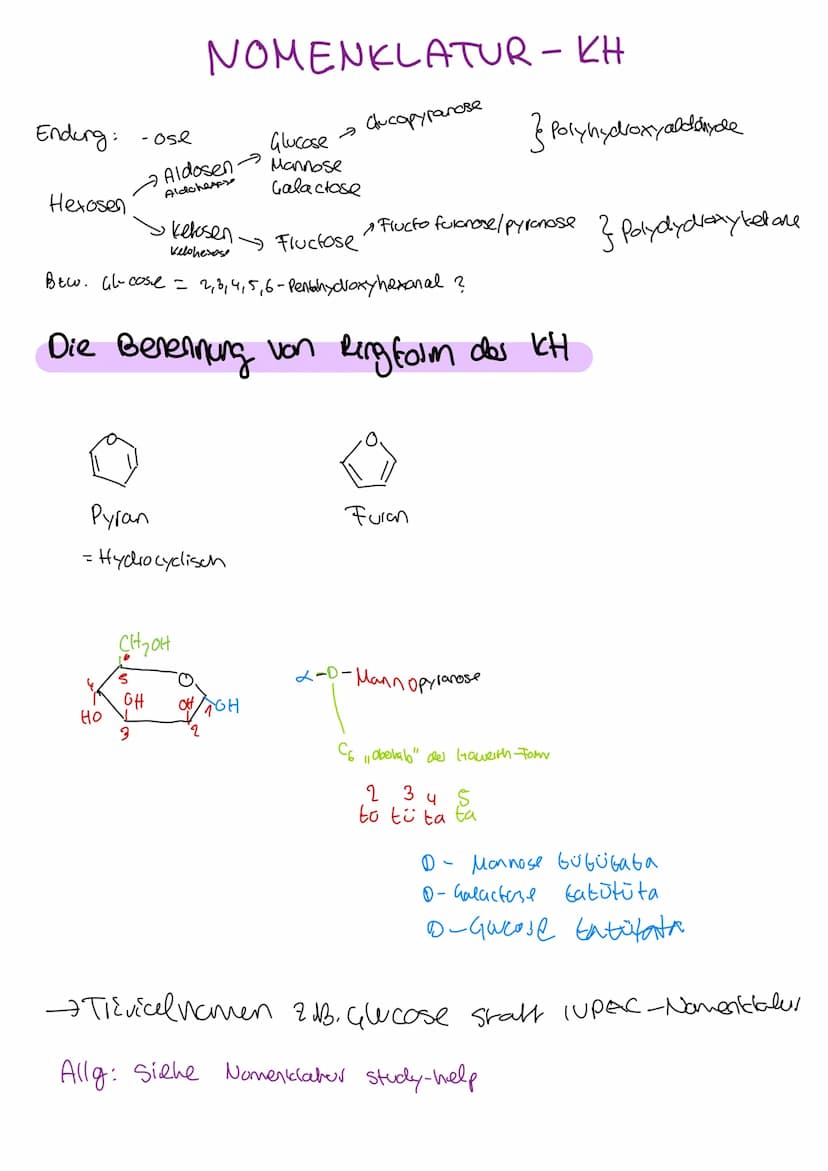 NOMENKLATUR - KH
Endung: -ose
Glucose → Glucopyranose
} Polyhydroxyaldehyde
→ Aldosen →
Aldohexose
Mannose
Galactose
Hexosen
→ Ketosen → Fructose
Ketohexose
↗ Fructofuranose/pyranose
} Polydydroxyketone
Btw. Glucose = 2,3,4,5,6-Pentahydroxyhexanal ?
Die Benennung von Ringform der KH
O
O
Pyran
Furan
= Hydrocyclisch
CH2OH
5
O
4
OH
OH
1
OH
HO
3
2
α-D-Mannopyranose
C6 „oberhalb" der Haworth-Form
2 3 4 5
tü tü ta ta
D - Mannose tütütata
D - Galactose tatütüta
D - Glucose
→ Trivialnamen z.B. Glucose statt IUPAC-Nomenklatur
Allg: Siehe Nomenklatur study-help